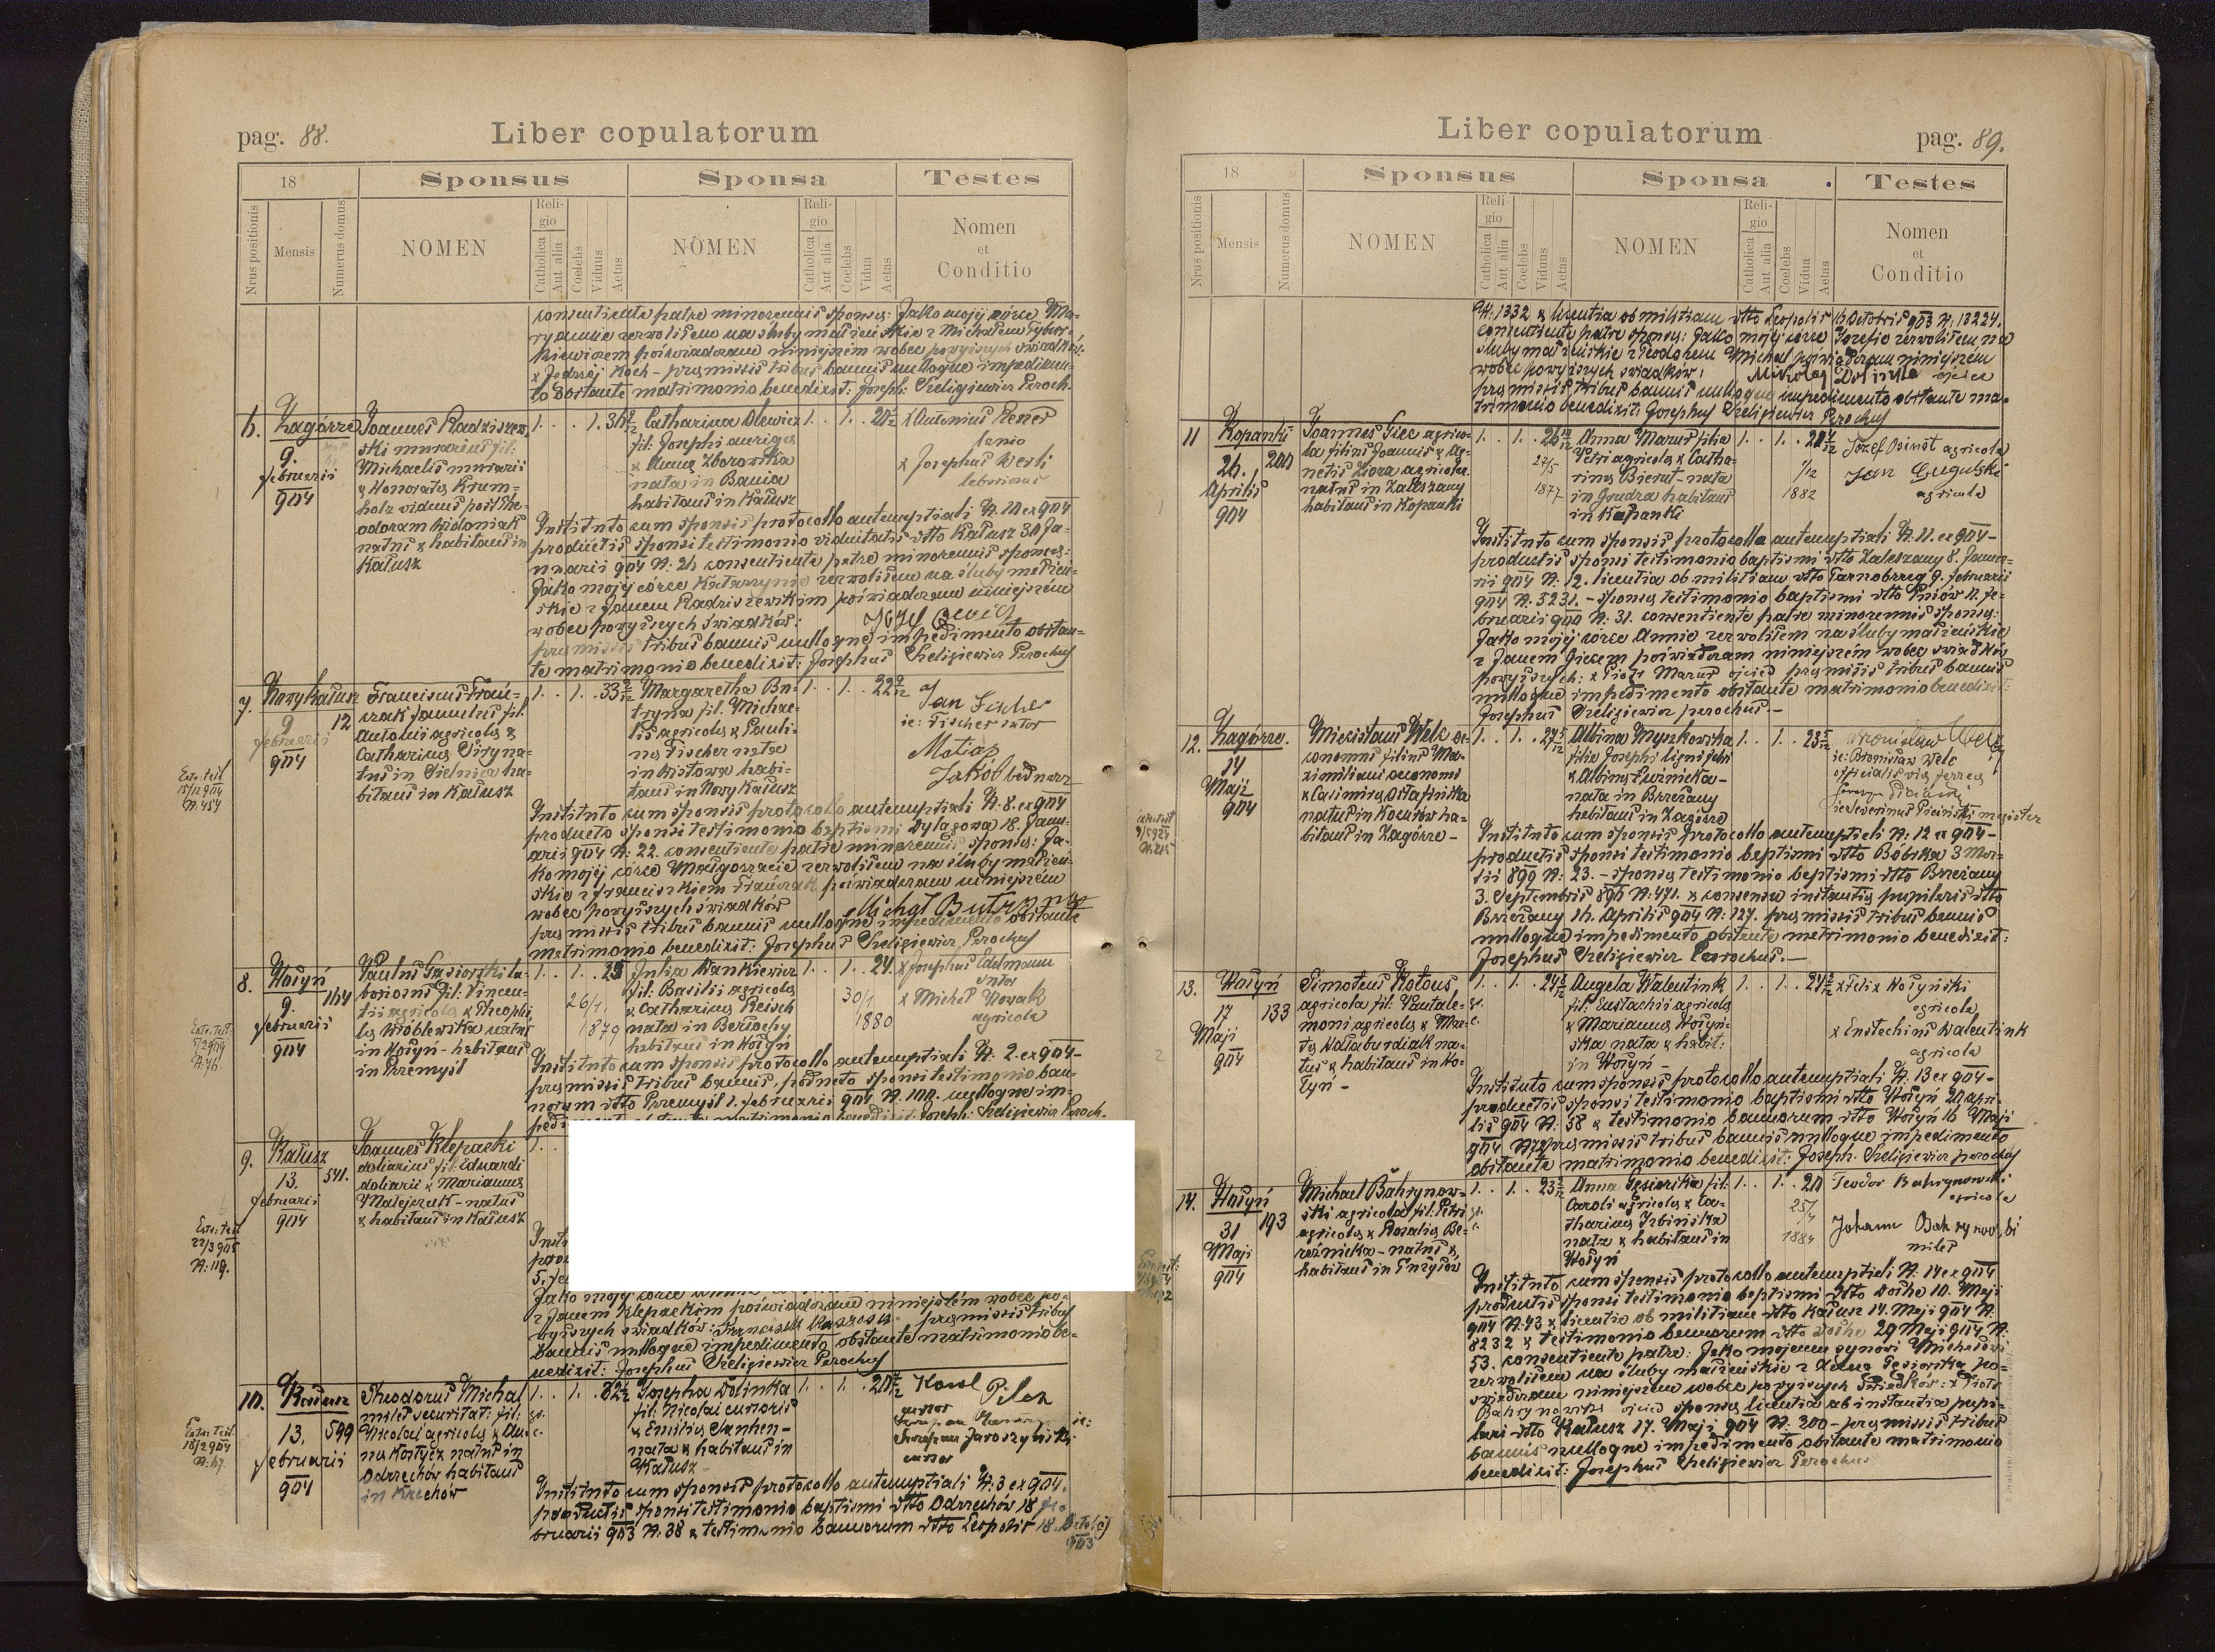 pag. 88.
Liber copulatorum
18
Sponsus
Sponsa
Testes
Nrus positionis
Mensis
Numerus domus
NOMEN
Religio
Catholica
Aut alia
Coelebs
Viduus
Aetas
NOMEN
Religio
Catholica
Aut alia
Coelebs
Vidua
Aetas
Nomen
et
Conditio
consentiente patre minorennis sponsae: Jako mojej córce Ma-
ryannie zezwoliłem na śluby małżeńskie z Michałem
poświadczam niniejszem wobec powyższych świadków:
x Jędrzej Koch - praemissis tribus bannis nulloque impedimen-
to obstante matrimonio benedixit: Joseph: Szeligiewicz Paroch.
6.
Zagórze
9.
februarii
904
Joannes Radziszew-
ski murarius fil:
Michaelis murarii
& Honoratae Krum-
holz viduus post The-
odoram Widoniak
natus & habitans in
Kałusz
1. . . 1. 36
Catharina Olewicz
fil: Josephi aurigae
& Annae Zborowska
nata in Bania
habitans in Kałusz
1. . 1. . 20
x Antonius Rener
lanio
x Josephus Werli
laboriosus
Instituto cum sponsis protocollo antenuptiali N: 10 ex 904
productis sponsi testimonio viduitatis dtto Kałusz 30 Ja-
nuarii 904 N: 26 consentiente patre minorennis sponsae:
Jako mojej córce Katarzynie zezwoliłem na śluby małżeń-
skie z Janem Radziszewskim poświadczam niniejszem
wobec powyższych świadków:
praemissis tribus bannis nulloque impedimento obstan-
te matrimonio benedixit: Josephus Szeligiewicz Parochus
7.
Nowy Kałusz
9
12
februarii
904
Franciscus Frań-
czak famulus fil.
Antonii agricolae &
Catharinae Piry na-
tus in Sielnica ha-
bitans in Kałusz
1. . 1. . 33
Margaretha Bu-
tryna fil. Michae-
lis agricolae & Pauli-
nae Fischer nata
in Kistowa habi-
tans in Nowy Kałusz
1. . 1. . 22
Jan Fischer
ie: Fischer sutor
Matias
Jakób bednarz
Extr. test
15/12 904
N: 454
Instituto cum sponsis protocollo antenuptiali N: 8. ex 904
producto sponsi testimonio baptismi Dylagowa 18. Janu-
arii 904 N: 22. consentiente patre minorennis sponsae: Ja-
ko mojej córce Małgorzacie zezwoliłem na śluby małżeń-
skie z Franciszkiem Frańczak poświadczam niniejszem
wobec powyższych świadków
Michał Butryna
praemissis tribus bannis nulloque impedimento obstante
matrimonio benedixit: Josephus Szeligiewicz Parochus
8.
Hołyń
9.
164
februarii
904
Paulus Gąsiorski la-
boriosus fil: Vincen-
tii agricolae & Theophi-
lae Wróblewska natus
in Hołyń - habitans
in Przemyśl
1. . 1. . 25
26/1.
1879
Julia Wankiewicz
fil: Basilii agricolae
& Catharinae Reisch
nata in Berłochy
habitans in Hołyń
1. . 1. . 24.
30/1
1880
x Josephus Edelmann
sutor
x Michel Nowak
agricola
Extr. test.
N: 76.
Instituto cum sponsis protocollo antenuptiali N: 2. ex 904 -
praemissis tribus bannis, producto sponsi testimonio ban-
norum dtto Przemyśl 1. februarii 904 N: 100. nulloque im-
9.
Kałusz
13.
541.
februarii
904
Joannes Klepacki
doliarius fil: Eduardi
doliarii & Mariannae
Matejczuk - natus
& habitans in Kałusz
1. .
Extr. test
22/3 905
N: 119.
z Janem Klepackim poświadczam niniejszem wobec po-
wyższych świadków: praemissis tribus
bannis nulloque impedimento obstante matrimonio be-
nedixit: Josephus Szeligiewicz Parochus
10.
Kałusz
13.
599
februarii
904
Theodorus Michal
miles securitat: fil:
Nicolai agricolae & An-
nae Kostycz natus in
Odrzechów habitans
in Krechów
1. . 1. . 32
gr.
c.
Josepha Dolinka
fil: Nicolai cursoris
& Emiliae Sanhen -
nata & habitans in
Kałusz -
1. . 1. . 20
Karol Pilch
cursor
Jaroszyński
cursor
Extr. test.
18/2 904
N: 67.
Instituto cum sponsis protocollo antenuptiali N: 3 ex 904.
productis sponsi testimonio baptismi dtto Odrzechów 18 fe-
bruarii 903 N: 38 & testimonio bannorum dtto Leopolis 18. Octobris
903
Liber copulatorum
pag. 89.
18
Sponsus
Sponsa
Testes
Nrus positionis
Mensis
Numerus domus
NOMEN
Religio
Catholica
Aut alia
Coelebs
Viduus
Aetas
NOMEN
Religio
Catholica
Aut alia
Coelebs
Vidua
Aetas
Nomen
et
Conditio
N: 1332 & licentia ob militiam dtto Leopolis 16 Octobris 903 N: 13224.
consentiente patre sponsae: Jako mojej córce Józefie zezwoliłem na
śluby małżeńskie z Teodorem Michal poświadczam niniejszem
wobec powyższych świadków: Mikołaj Dolinka ojciec
praemissis tribus bannis nulloque impedimento obstante ma-
trimonio benedixit: Josephus Szeligiewicz Parochus
11
Kopanki
26.
200
Aprilis
904
Joannes Giec agrico-
la filius Joannis & Ag-
netis Ziora agricolar.
natus in Zaleszany
habitans in Kopanki
1. . 1. . 26 10/12
27/5
1877
Anna Maruś filia
Petri agricolae & Catha-
rinae Bierut - nata
in Gorzdza habitans
in Kopanki
1. . 1. . 20
1/12
1882
Józef agricola
Jan Gugulski
agricola
Instituto cum sponsis protocollo antenuptiali N. 11. ex 904 -
productis sponsi testimonio baptismi dtto Zaleszany 8. Janua-
rii 904 N: 12. licentia ob militiam dtto Tarnobrzeg 9. februarii
904 N: 3231. - sponsae testimonio baptismi dtto Pniów 11. fe-
bruarii 900 N: 31. consentiente patre minorennis sponsae:
Jako mojej córce Annie zezwoliłem na śluby małżeńskie
z Janem Giecem poświadczam niniejszem wobec świadków
powyższych: x Piotr Maruś ojciec praemissis tribus bannis
nulloque impedimento obstante matrimonio benedixit:
Josephus Szeligiewicz parochus. -
12.
Zagórze.
14
Maji
904
Miecislaus Welc oe-
conomus filius Ma-
ximiliani oeconomi
& Casimirae Ostafińska
natus in Kocurów ha-
bitans in Zagórze -
1. . 1. . 27 5/12
Albina Myszkowska
filia Josephi
& Albinae Zwiniecka -
nata in Brzeżany
habitans in Zagórze
1. . 1. . 23 5/12
Bronisław Welc
ie: Bronisław Welc
officialis viae ferreae
ie: Severinus Piciński magister
Instituto cum sponsis protocollo antenuptiali N: 12 ex 904 -
productis sponsi testimonio baptismi dtto Bóbrka 3 Mar-
tii 899 N: 23. - sponsae testimonio baptismi dtto Brzeżany
3. Septembris 890 N: 471. & consensu instantiae pupillaris dtto
Brzeżany 16. Aprilis 904 N: 127. praemissis tribus bannis
nulloque impedimento obstante matrimonio benedixit:
Josephus Szeligiewicz Parochus. -
13.
Hołyń
17
133
Maji
904
Timoteus Kołous
agricola fil. Pantale-
moni agricolae & Mar-
tae Wałaburdiak na-
tus & habitans in Ho-
łyń -
1. . 1. . 24
gr.
c.
Angela Walentink
fil. Eustachii agricolae
& Mariannae Hołyń-
ska nata & habit:
in Hołyń -
1. . 1. . 24
x Felix Hołyński
agricola
x Eustachius Walentink
agricola
Instituto cum sponsis protocollo antenuptiali N. 13 ex 904 -
productis sponsi testimonio baptismi dtto Hołyń 21 Apri-
lis 904 N: 58 & testimonio bannorum dtto Hołyń 16 Maji
904 praemissis tribus bannis nulloque impedimento
obstante matrimonio benedixit: Joseph. Szeligiewicz parochus
14.
Hołyń
31
193
Maji
904
Michael Bahrynow-
ski agricola fil: Petri
agricolae & Rosaliae Be-
reźnicka - natus &
habitans in Tużyłów
1. . 1. . 23
gr.
c.
Anna Gąsiorska fil:
Caroli agricolae & Ca-
tharinae Izbińska
nata & habitans in
Hołyń
1. . 1. . 20
25/4
1884
Teodor Bahrynowski
agricola
Johann Bahrynowski
miles
Instituto cum sponsis protocollo antenuptiali N: 14 ex 904
productis sponsi testimonio baptismi dtto 10. Maji
904 N. 43 & licentia ob militiam dtto Kałusz 14. Maji 904 N.
8232 & testimonio bannorum dtto 29 Maji 904 N:
53. consentiente patre: Jako mojemu synowi Michałowi
zezwoliłem na śluby małżeńskie z Anną Gąsiorską po-
świadczam niniejszem wobec powyższych świadków: x Piotr
Bahrynowski ojciec sponsae licentia ab instantia pupi-
lari dtto Kałusz 17. Maji 904 N: 300 - praemissis tribus
bannis nulloque impedimento obstante matrimonio
benedixit: Josephus Szeligiewicz Parochus